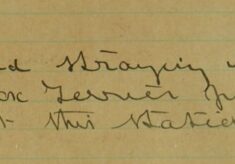 nd straying
ox Terrier
t this Statio